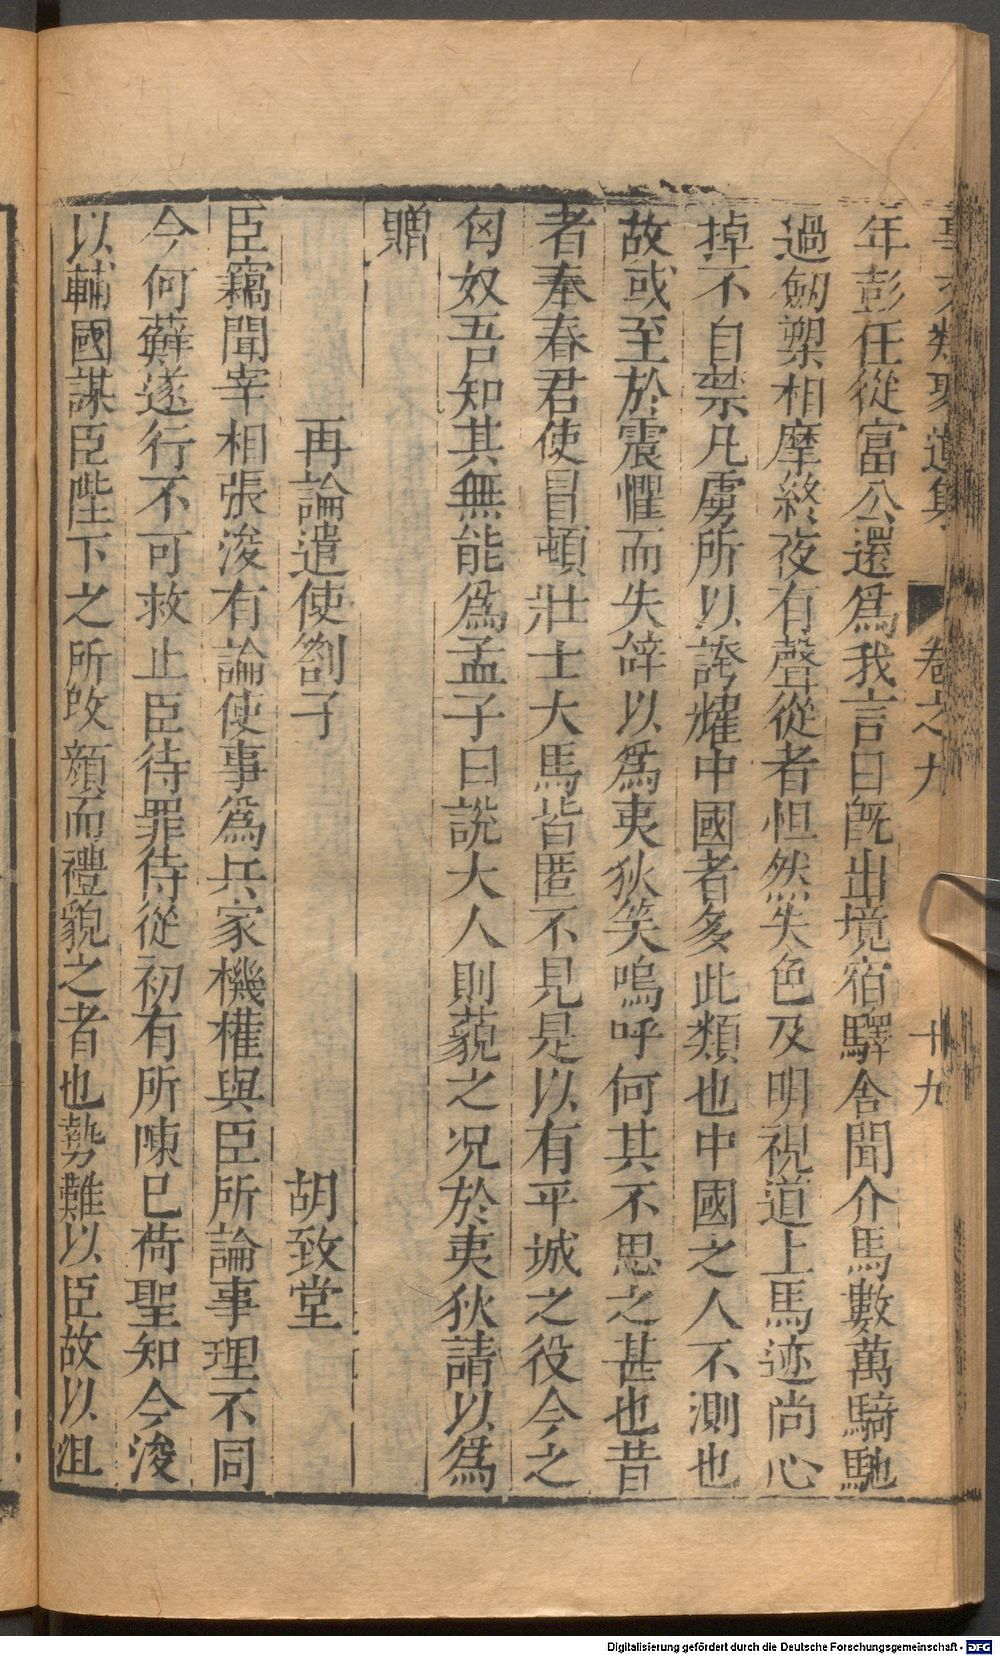 事文類聚遺集 卷之九 廿九
年彭任從富公還爲我言曰旣出境宿驛舍聞介馬數萬騎馳
過劒槊相摩終夜有聲從者怛然失色及明視道上馬迹尚心
掉不自禁凡虜所以誇耀中國者多此類也中國之人不測也
故或至於震懼而失辭以爲夷狄笑嗚呼何其不思之甚也昔
者奉春君使冒頓壯士大馬皆匿不見是以有平城之役今之
匈奴吾知其無能爲孟子曰說大人則藐之况於夷狄請以爲
贈
再論遣使劄子 胡致堂
臣竊聞宰相張浚有論使事爲兵家機權與臣所論事理不同
今何蘚遂行不可救止臣待罪侍從初有所陳已荷聖知今浚
以輔國謀臣陛下之所改顏而禮貌之者也勢難以臣故以沮
Digitalisierung gefördert durch die Deutsche Forschungsgemeinschaft - DFG